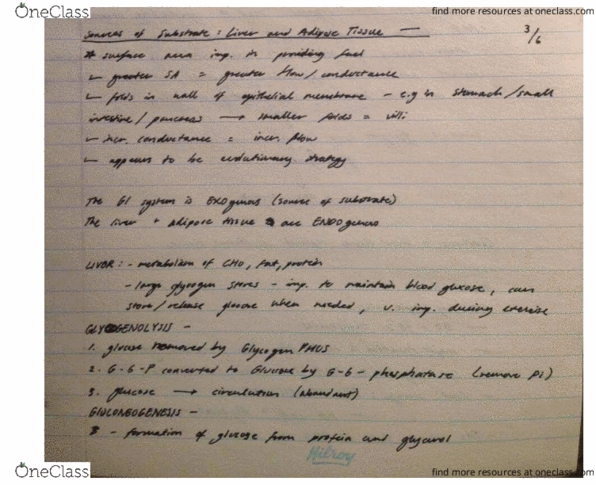 OneClass
find more resources at oneclass.com
Sources of Substrate: Liver and Adipose Tissue —
3/6
* surface area imp. in providing fuel
↳ greater SA = greater flow/conductance
↳ folds in wall of epithelial membrane - e.g in stomach/small
intestine/pancreas → smaller folds = villi
↳ incr. conductance = incr. flow
↳ appears to be evolutionary strategy
The GI system is EXOgenous (source of substrate)
The liver + adipose tissue are ENDOgenous
LIVER: - metabolism of CHO, fat, protein
- large glycogen stores - imp. to maintain blood glucose, can
store/release glucose when needed, v. imp. during exercise
GLYCOGENOLYSIS -
1. glucose removed by Glycogen PHOS
2. G-6-P converted to Glucose by G-6-phosphatase (remove Pi)
3. glucose → circulation (abundant)
GLUCONEOGENESIS -
- formation of glucose from protein and glycerol
Hilroy
OneClass
find more resources at oneclass.com